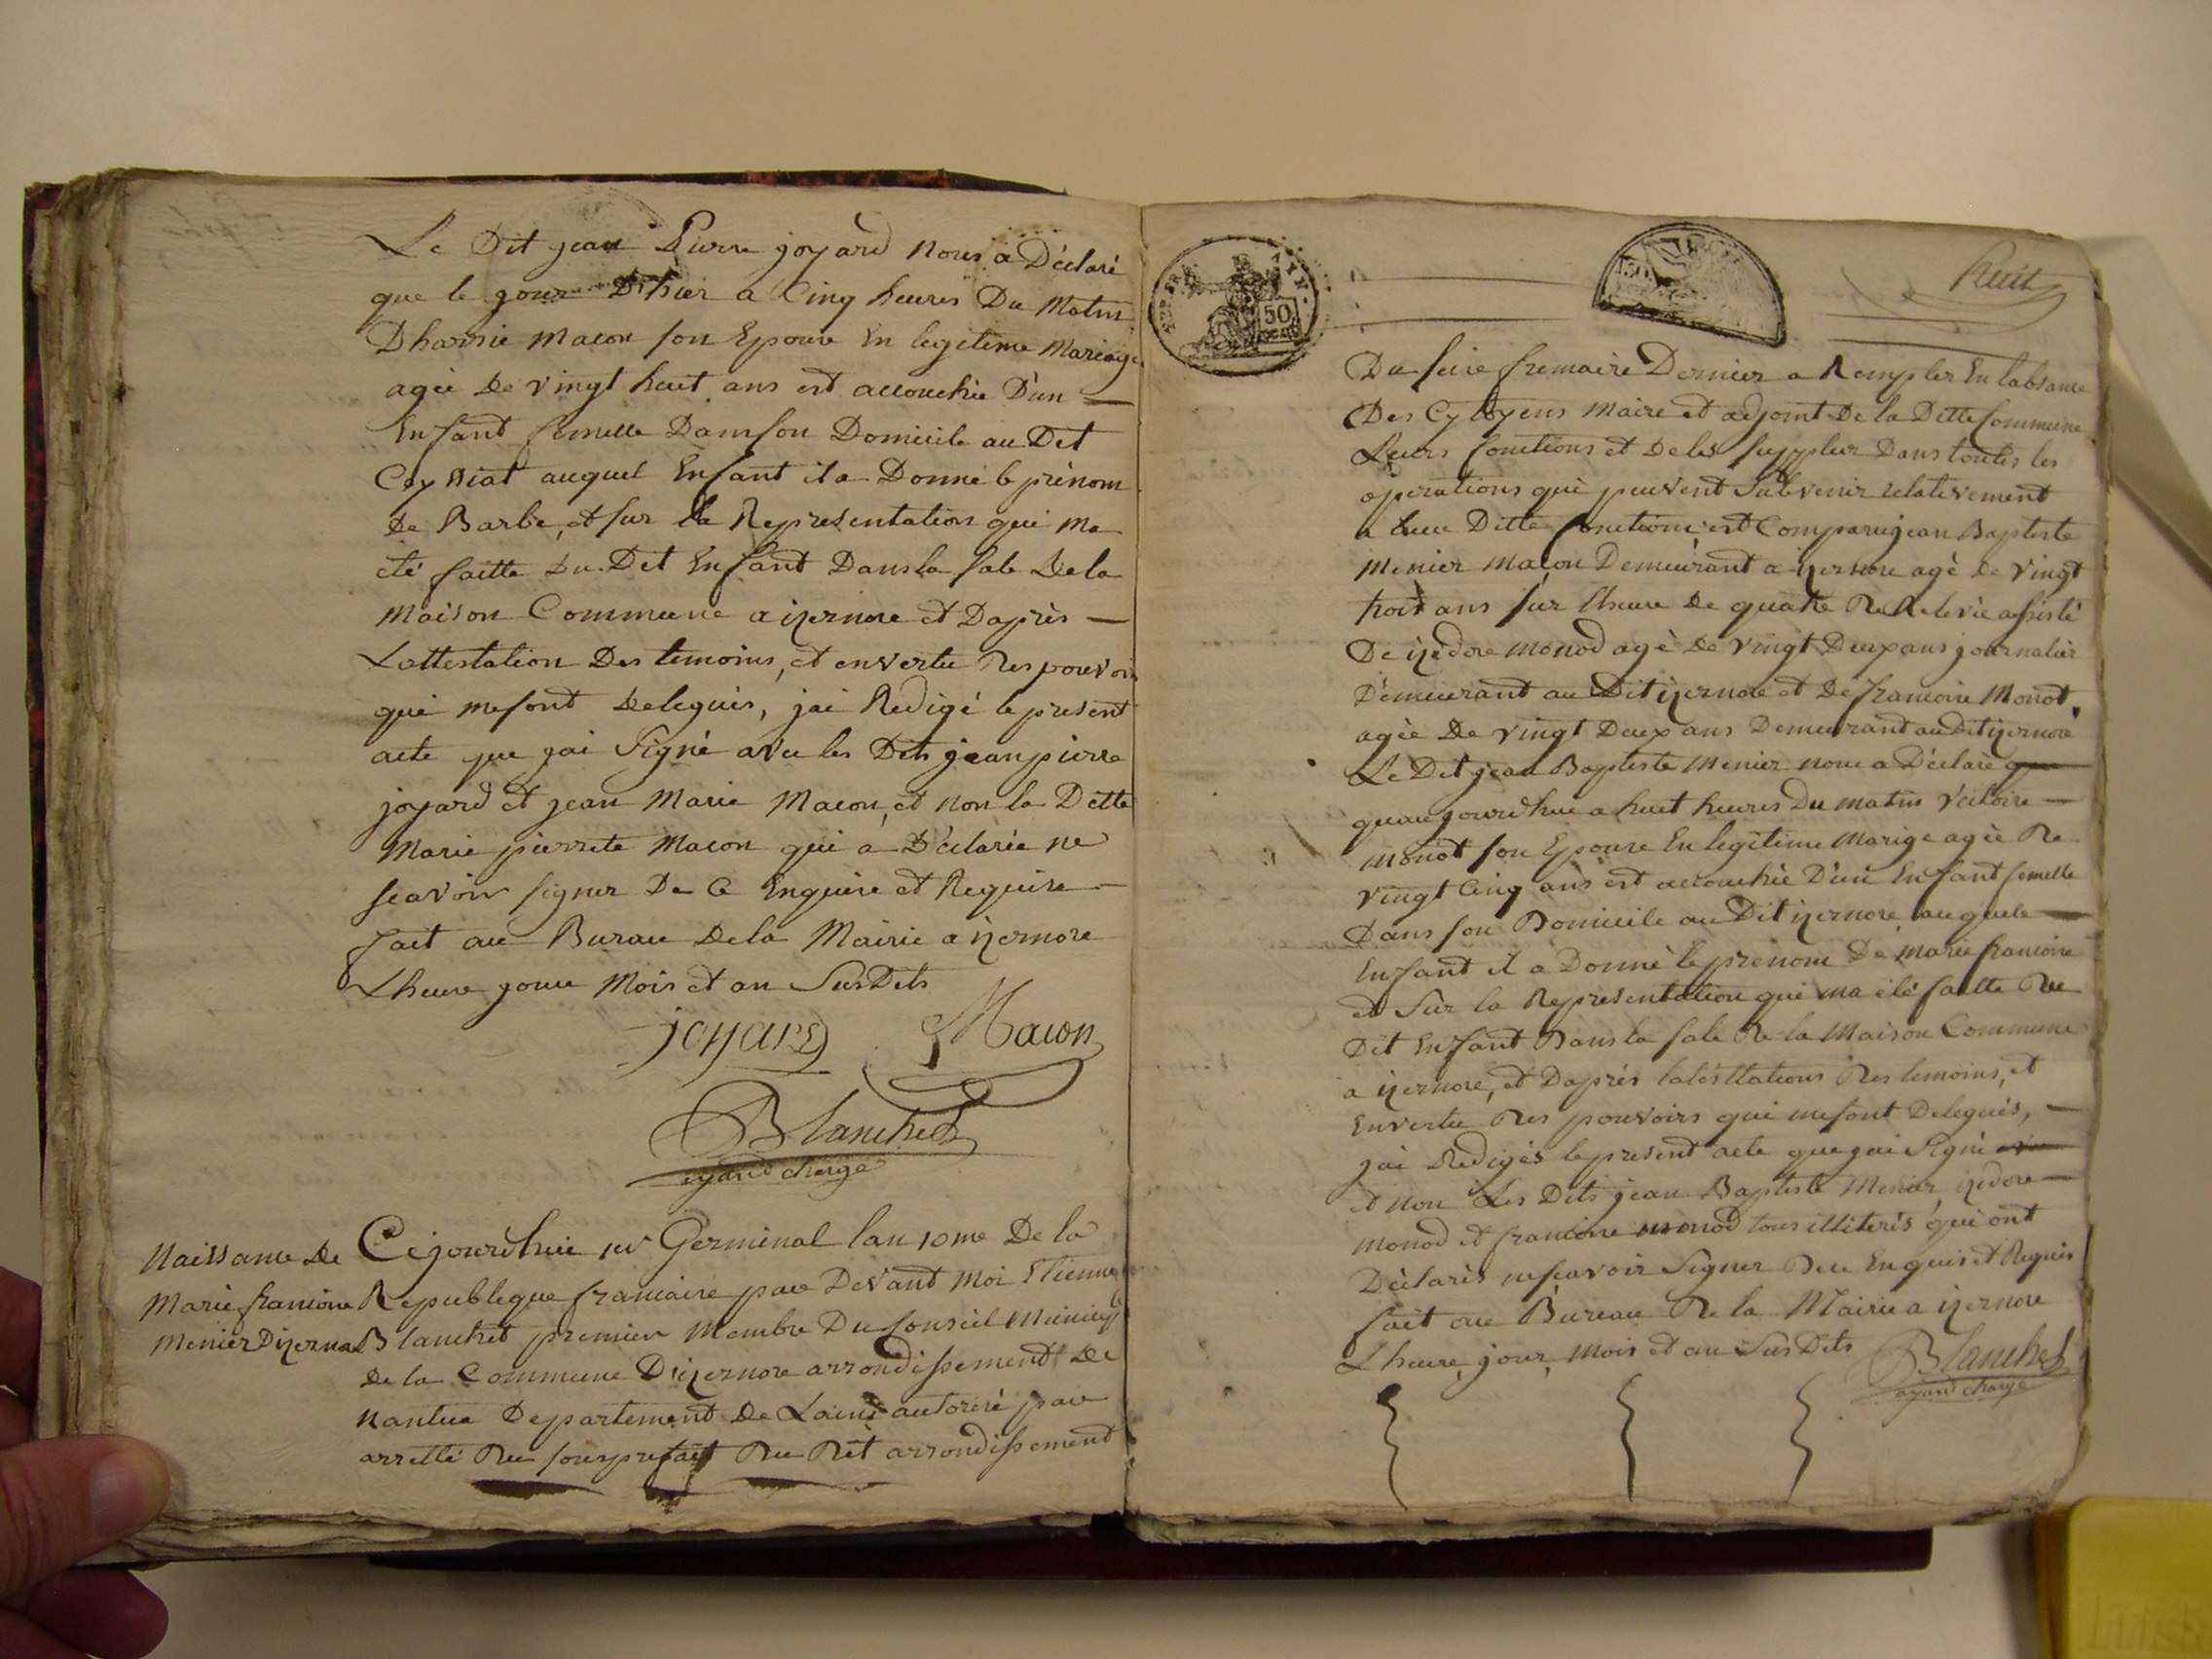 Le Dit jean Pierre joyard nous a Déclaré
que le jour D'hier a Cinq heures Du Matin
Macon son Epouse En legitime Mariage
agée De vingt huit ans est accouchée D'un
Enfant femelle Damson Domicile au Dit
Ceyssiat auquel Enfant il a Donné le prénom
de Barbe, et sur la Representation qui ma
été faitte Du Dit Enfant Dans la sale De la
Maison Commune a izernore et D'après
Lattestation Des temoins, et en vertu Des pouvoirs
qui me sont delegués, jai Redigé le present
acte que jai Signé avec les Dits jean pierre
joyard et jean Marie Macon, et non la Ditte
Marie pierrete Macon qui a Déclarée ne
scavoir signer De Ce Enquise et Requise
fait au Burau De la Mairie a izernore
Lheure jour Mois et an SusDits
joyard Macon
Blanchet
ayand charge
Naissance De
Marie francoise
Menier Dizernore
Cejourdhui Germinal lan 10me De la
Republeque francaise par Devant Moi Etienne
Blanchet premier Membre Du Conseil Municip
De la Commune D'izernore arrondissement De
Nantua Departement De Lain autorisé par
arretté Du sousprefait Du Dit arrondissement
50
huit
Du seise fremaire Dernier a Rempler En labsance
Des Cytoyens Maire et adjoint De la Ditte Commune
Leurs fonctions et De les suppleer Dans toutes les
operations qui peuvent Subvenir relativement
a Leur Ditte fonctions est Comparu jean Baptiste
Menier Maçon Demeurant a izernore agé De vingt
trois ans sur lheure De quatre De Relevée assisté
De izedore Monod agé De vingt Deux ans journalier
Demeurant au Dit izernore et De francoise Monot
agée De vingt Deux ans Demeurant au Dit izernore
Le Dit jean Baptiste Menier nous a Déclaré que
quaujourdhui a huit heures Du matin Victoire
Monot son Epouse En legitime Marige agée De
vingt Cinq ans est accouchée D'un Enfant femelle
Dans son Domicile au Dit izernore auquele
Enfant il a Donné le prenom De marie francoise
et Sur la Representation qui ma été faitte Du
Dit Enfant Dans la sale De la Maison Commune
a izernore, et D'après latesttations Des temoins, et
En vertu Des pouvoirs qui me sont Delegués,
jai Redigés le present acte que jai Signé
et non Les Dits jean Baptiste Menier, izedore
monod et francoise monod tous illiterés qui ont
Déclarés ne scavoir Signer De ce Enquis et Requis
fait au Bureau De la Mairie a izernore
Lheure, jour, Mois et an Sus Dits
Blanchet
ayand charge